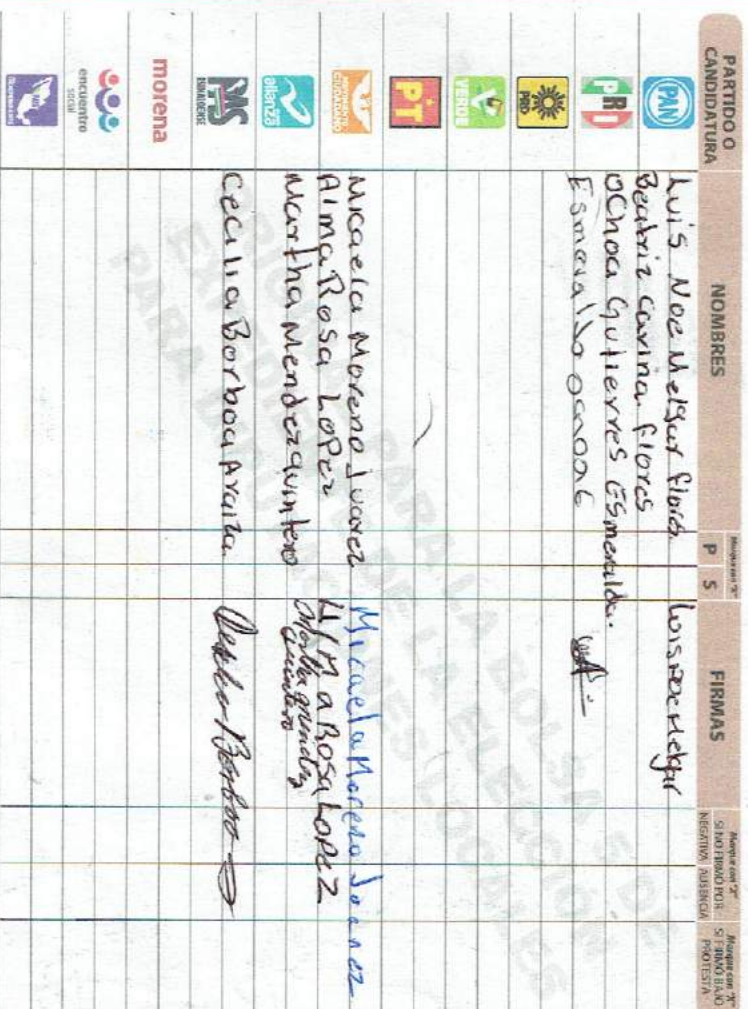 PARTIDO O CANDIDATURA
NOMBRES
Marque con "X"
P S
FIRMAS
Marque con "X" SI NO FIRMÓ POR
NEGATIVA AUSENCIA
Marque con "X" SI FIRMÓ BAJO PROTESTA
PAN
Luis Noe Melgar flores. Luis Noe Melgar
Beatriz Carina flores
PRI
Ochoa Gutierres Esmeralda.
Esmeralda
PRD
VERDE
PT
MOVIMIENTO CIUDADANO
Micaela Moreno Juarez Micaela Moreno Joarez
Alma Rosa Lopez Alma Rosa Lopez
alianza
Martha Mendez quintero Martha Mendez quintero
PAS
SINALOENSE
Cecilia Borboa Araiza
morena
encuentro social
PARA LA BOLSA 5 DE
EXPEDIENTE DE LA ELECCIÓN
PARA DIPUTACIONES LOCALES